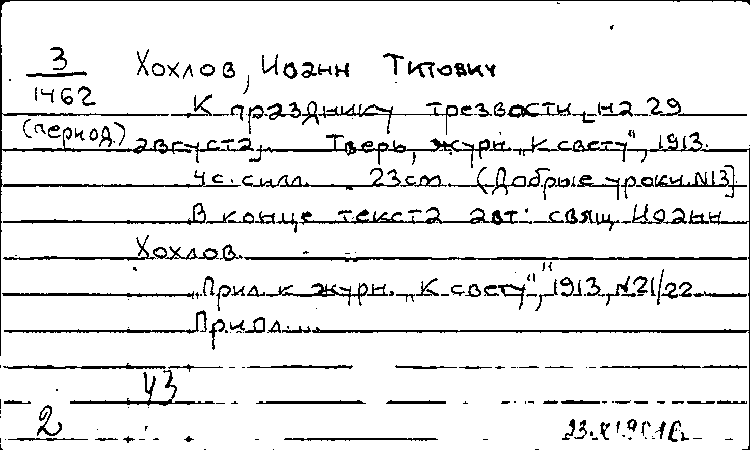 3
1462
(период)
Хохлов, Иоанн Титович
К празднику трезвости [на 29
августа]. Тверь, журн. „К свету“, 1913.
4 с. илл. 23 cm. (Добрые уроки. N13]
В конце текста авт: свящ. Иоанн
Хохлов.
„Прил. к журн. „К свету“, 1913, N21/22“
Припл....
43
2